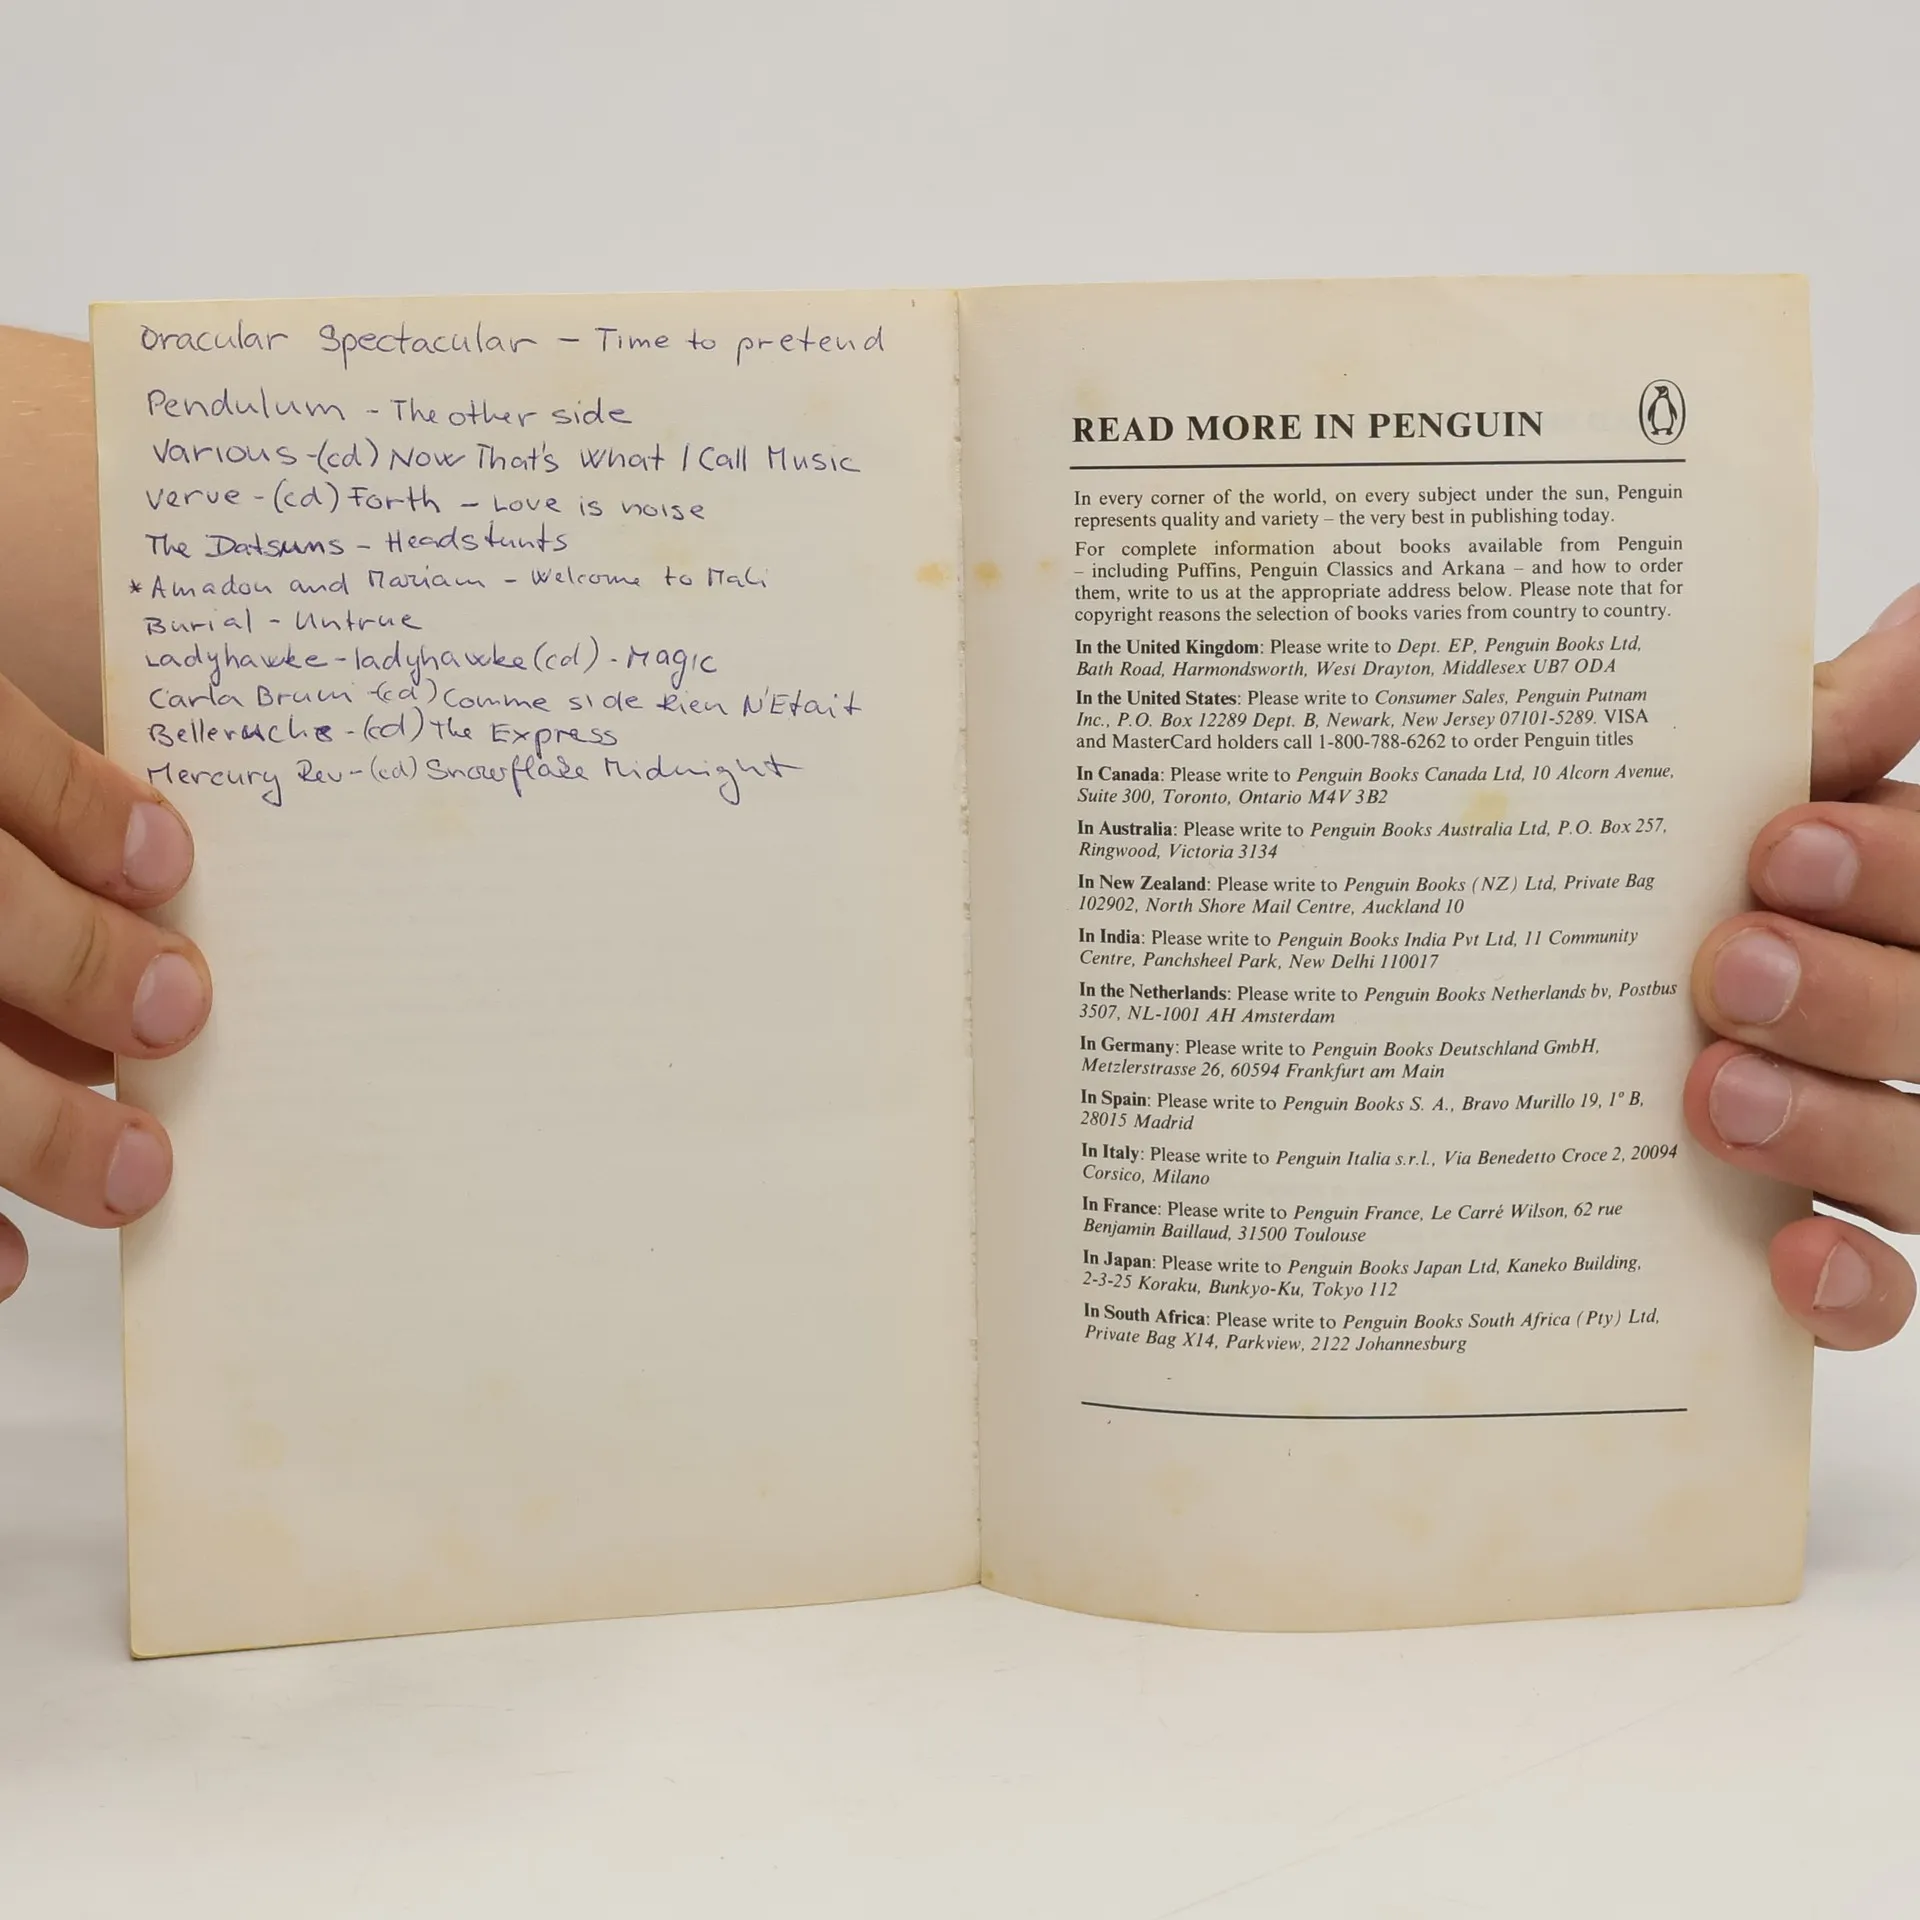 Oracular Spectacular – Time to pretend
Pendulum - The other side
Various -(cd) Now That's What I Call Music
Verve -(cd) Forth – Love is noise
The Datsuns – Headstunts
* Amadou and Mariam – Welcome to Mali
Burial - Untrue
Ladyhawke - ladyhawke (cd) - Magic
Carla Bruni -(cd) Comme si de Rien N'Etait
Belleruche -(cd) The Express
Mercury Rev -(cd) Snowflake Midnight
READ MORE IN PENGUIN
In every corner of the world, on every subject under the sun, Penguin
represents quality and variety – the very best in publishing today.
For complete information about books available from Penguin
– including Puffins, Penguin Classics and Arkana – and how to order
them, write to us at the appropriate address below. Please note that for
copyright reasons the selection of books varies from country to country.
In the United Kingdom: Please write to Dept. EP, Penguin Books Ltd,
Bath Road, Harmondsworth, West Drayton, Middlesex UB7 ODA
In the United States: Please write to Consumer Sales, Penguin Putnam
Inc., P.O. Box 12289 Dept. B, Newark, New Jersey 07101-5289. VISA
and MasterCard holders call 1-800-788-6262 to order Penguin titles
In Canada: Please write to Penguin Books Canada Ltd, 10 Alcorn Avenue,
Suite 300, Toronto, Ontario M4V 3B2
In Australia: Please write to Penguin Books Australia Ltd, P.O. Box 257,
Ringwood, Victoria 3134
In New Zealand: Please write to Penguin Books (NZ) Ltd, Private Bag
102902, North Shore Mail Centre, Auckland 10
In India: Please write to Penguin Books India Pvt Ltd, 11 Community
Centre, Panchsheel Park, New Delhi 110017
In the Netherlands: Please write to Penguin Books Netherlands bv, Postbus
3507, NL-1001 AH Amsterdam
In Germany: Please write to Penguin Books Deutschland GmbH,
Metzlerstrasse 26, 60594 Frankfurt am Main
In Spain: Please write to Penguin Books S. A., Bravo Murillo 19, 1º B,
28015 Madrid
In Italy: Please write to Penguin Italia s.r.l., Via Benedetto Croce 2, 20094
Corsico, Milano
In France: Please write to Penguin France, Le Carré Wilson, 62 rue
Benjamin Baillaud, 31500 Toulouse
In Japan: Please write to Penguin Books Japan Ltd, Kaneko Building,
2-3-25 Koraku, Bunkyo-Ku, Tokyo 112
In South Africa: Please write to Penguin Books South Africa (Pty) Ltd,
Private Bag X14, Parkview, 2122 Johannesburg